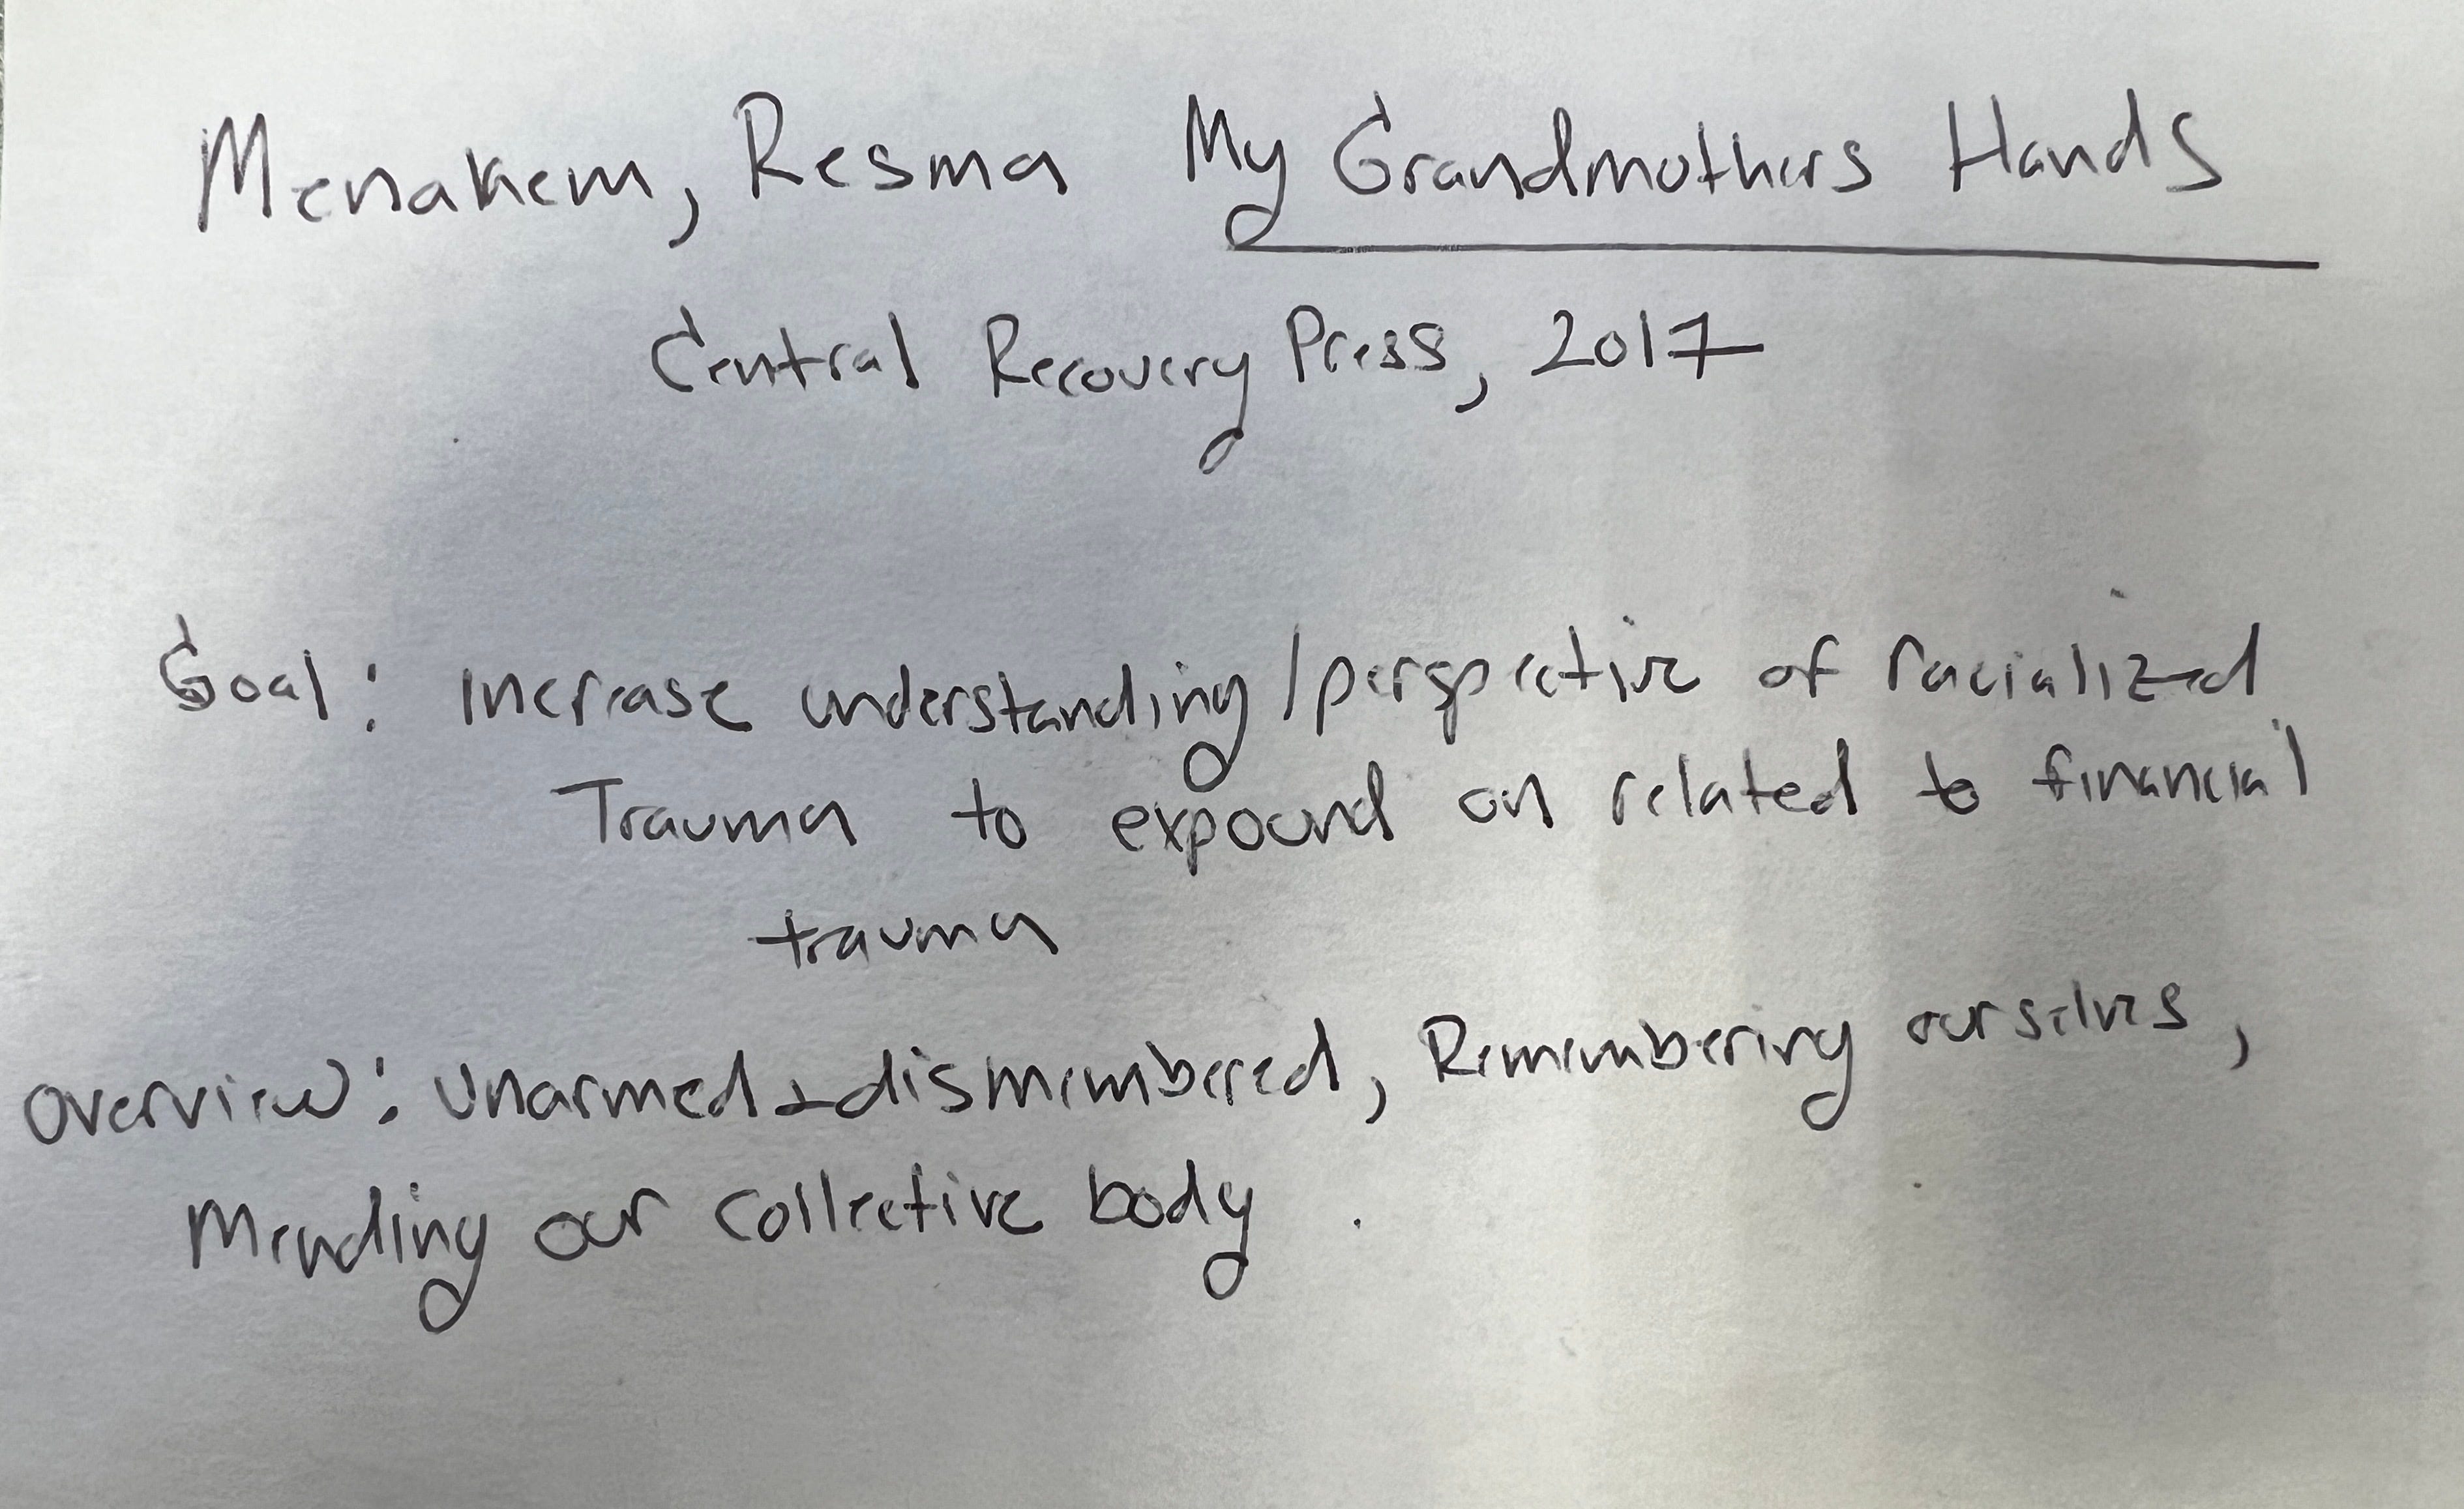 Menakem, Resma My Grandmothers Hands
Central Recovery Press, 2017
Goal: increase understanding/perspective of racialized
Trauma to expound on related to financial
trauma
overview: Unarmed + dismembered, Remembering ourselves,
Mending our collective body.